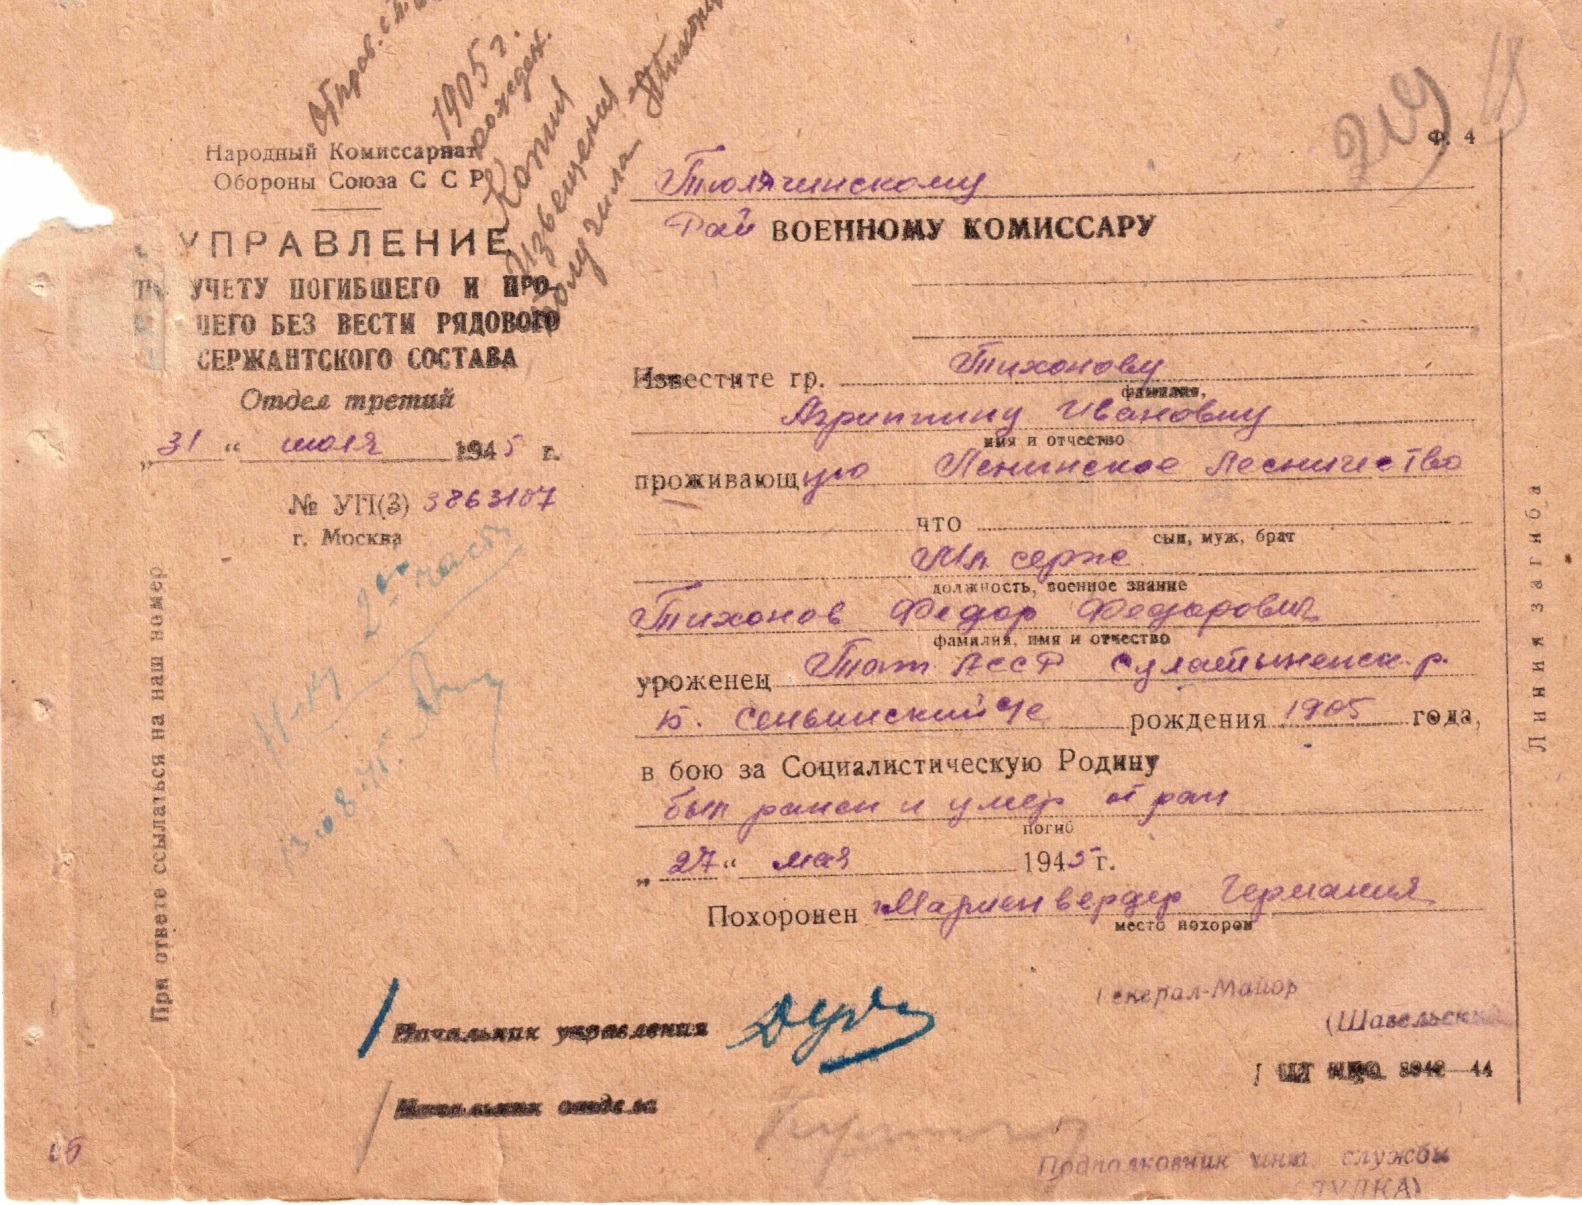 1905 г.
рожден.
Копия
Извещения
получила Тихон
Народный Комиссариат
Обороны Союза С С Р
УПРАВЛЕНИЕ
УЧЕТУ ПОГИБШЕГО И ПРО-
ШЕГО БЕЗ ВЕСТИ РЯДОВОГО
СЕРЖАНТСКОГО СОСТАВА
Отдел третий
„31“ июля 1945 г.
№ УП(3) 3863107
г. Москва
2ой часть
При ответе ссылаться на наш номер
219
Ф. 4
Тюлячинскому
Рай ВОЕННОМУ КОМИССАРУ
Известите гр. Тихонову
фамилия,
Агриппину Ивановну
имя и отчество
проживающую Ленинское Лесничество
что
сын, муж, брат
Мл. серж
должность, военное звание
Тихонов Федор Федорович
фамилия, имя и отчество
уроженец Тат АССР
рождения 1905 года,
в бою за Социалистическую Родину
был ранен и умер от ран
погиб
„27“ мая 1945 г.
Похоронен Мариенвердер Германия
место похорон
Линия загиба
Генерал-Майор
Начальник управления
(Шавельский
Начальник отдела
Подполковник инт. службы